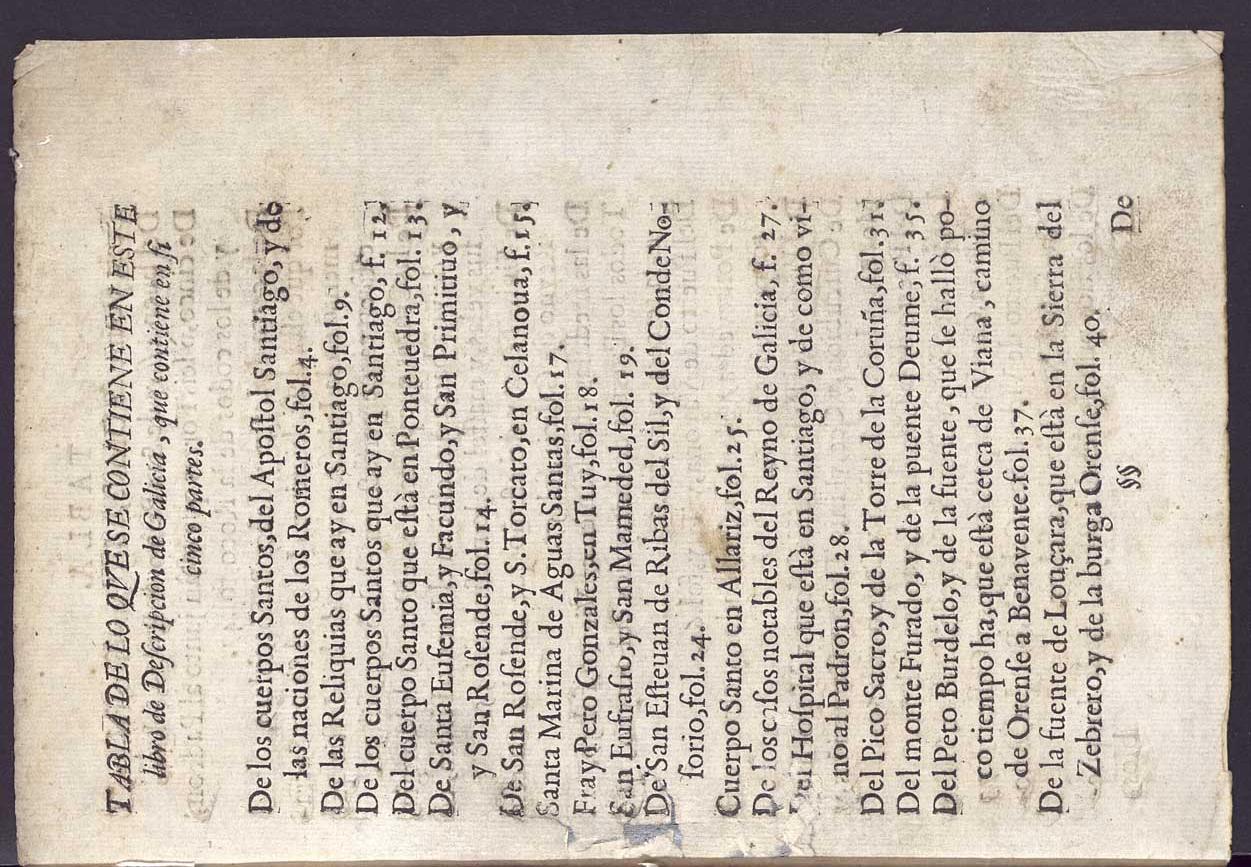 TABLA DE LO QVE SE CONTIENE EN ESTE
libro de Descripcion de Galicia, que contiene en si
cinco partes.
De los cuerpos Santos, del Apostol Santiago, y de
las naciones de los Romeros, fol. 4.
De las Reliquias que ay en Santiago, fol. 9.
De los cuerpos Santos que ay en Santiago, f. 12.
Del cuerpo Santo que està en Ponteuedra, fol. 13.
De Santa Eufemia, y Facundo, y San Primitiuo, y
y San Rosende, fol. 14.
De San Rosende, y S. Torcato, en Celanoua, f. 15.
Santa Marina de Aguas Santas, fol. 17.
Fray Pero Gonzales, en Tuy, fol. 18.
San Eufrasio, y San Mameded, fol. 19.
De San Esteuan de Ribas del Sil, y del Conde No-
sorio, fol. 24.
Cuerpo Santo en Allariz, fol. 25.
De los casos notables del Reyno de Galicia, f. 27.
Del Hospital que està en Santiago, y de como vi-
no al Padron, fol. 28.
Del Pico Sacro, y de la Torre de la Coruña, fol. 31.
Del monte Furado, y de la puente Deume, f. 35.
Del Peto Burdelo, y de la fuente, que se hallò po-
co tiempo ha, que està cerca de Viana, camino
de Orense a Benavente. fol. 37.
De la fuente de Louçara, que està en la Sierra del
Zebrero, y de la burga Orense, fol. 40.
§§ De